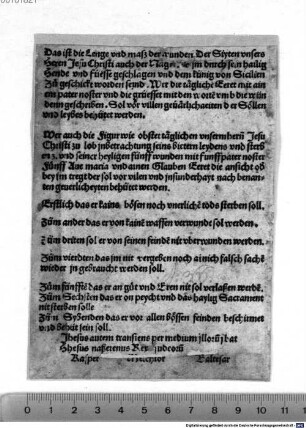 Das ist die Lenge vnd maß der wunden Der Syten vnsers
Herrn Jesu Christi auch der Nagel jm durch sein heilig
Hende vnd füesse geschlagen vnd dem künig von Sicilien
Zů geschickt worden seind. Wer die tägliche Eeret mit aim
ein pater noster vnd die grüesset mit den worten vmb die wun
denn geschriben. Sol vor villen geuärlichaiten der Söllen
und leybes behütet werden.
Wer auch die Figur wie obstet täglichen vnsermherrn Jesu
Christi zu lob jnbetrachtung seins bittern leydens vnd sterb
vnd seiner heyligen fünff wunden mit funff pater noster
Fünff Aue maria vnd ainen Glauben Eeret die ansicht od
bey jm tregt der sol vor vilen vnd jnsunderhayt nach benan-
ten geuerlicheyten behütet werden.
Erstlich das er kains bösen noch vnerlichē tods sterben soll.
Zům ander das er von kainē waffen verwundt sol werden.
Zům driten sol er von seinen feindē nit vberwunden werden.
Zům vierdten das jm nit vergeben noch ainich falsch sachē
wieder jn gebraucht werden soll.
Zům fünfftē das er an gůt vnd Eren nit sol verlassen werdē.
Zům Sechsten das er on peycht vnd das haylig Sacrament
nit sterben solle
Zům Sybenden das er vor allen bössen feinden beschirmet
vnd behüt sein soll.
Jhesus autem transiens per medium illorū jbat
Jhesus nazerenus Rex judeorū
Kasper Melchior Baltesar
0 1 2 3 4 5 6 7 8 9 10 11
Digitalisierung gefördert durch die Deutsche Forschungsgemeinschaft